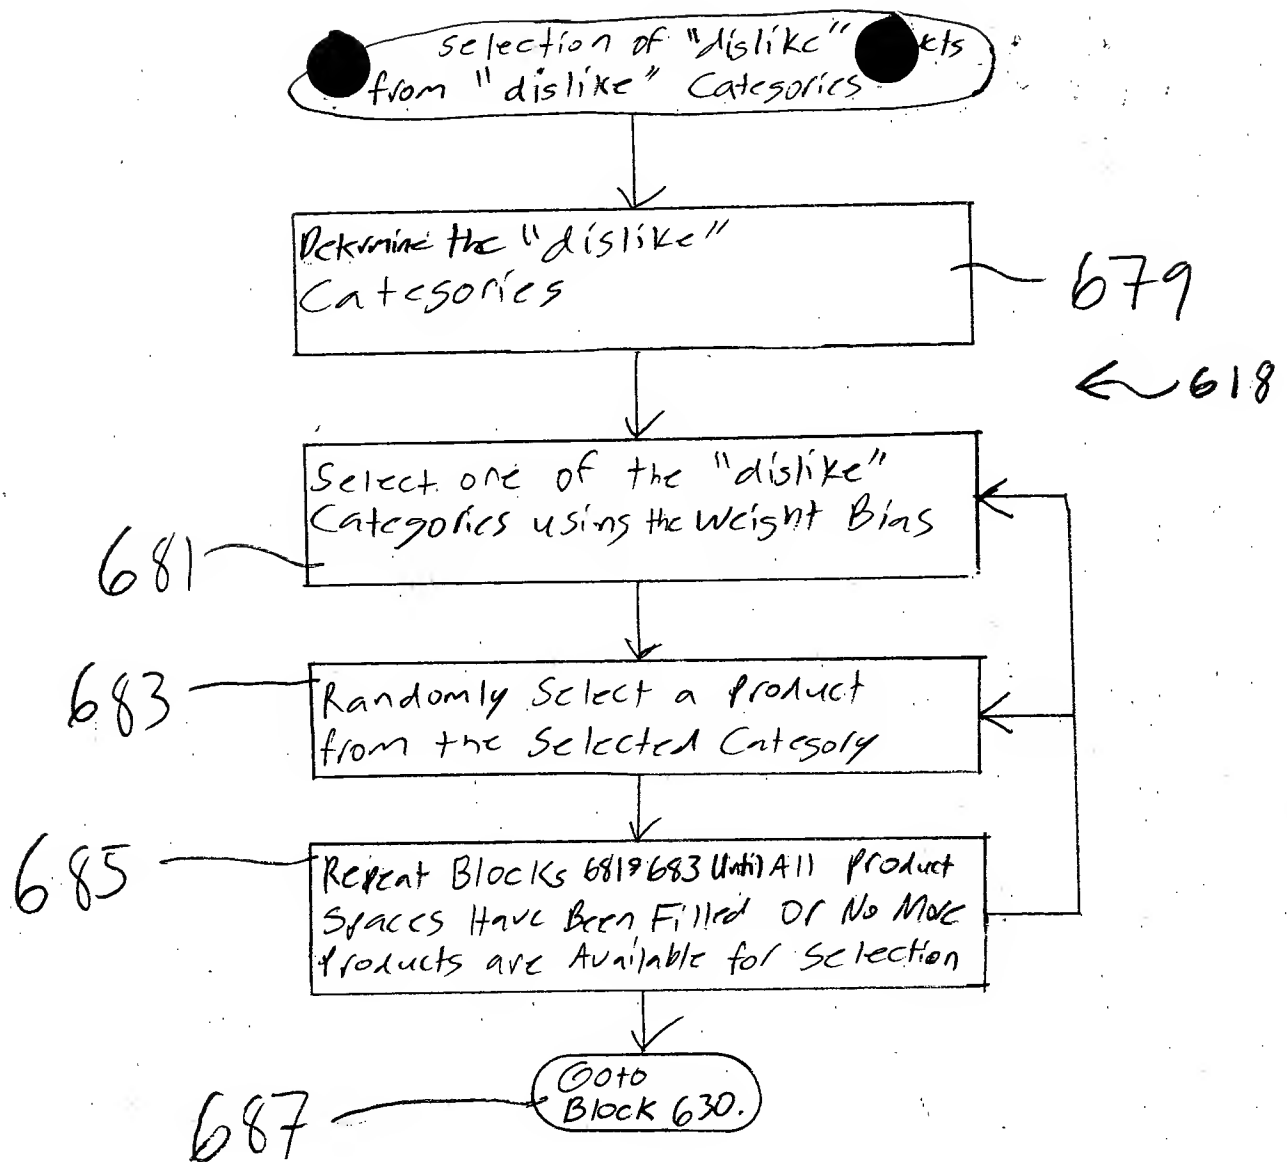 selection of "dislike"
from "dislike" Categories
Determine the "dislike"
Categories
679
618
Select one of the "dislike"
Categories using the Weight Bias
681
683
Randomly Select a Product
from the Selected Category
685
Repeat Blocks 681&683 Until All Product
Spaces Have Been Filled Or No More
Products are Available for Selection
Goto
Block 630.
687